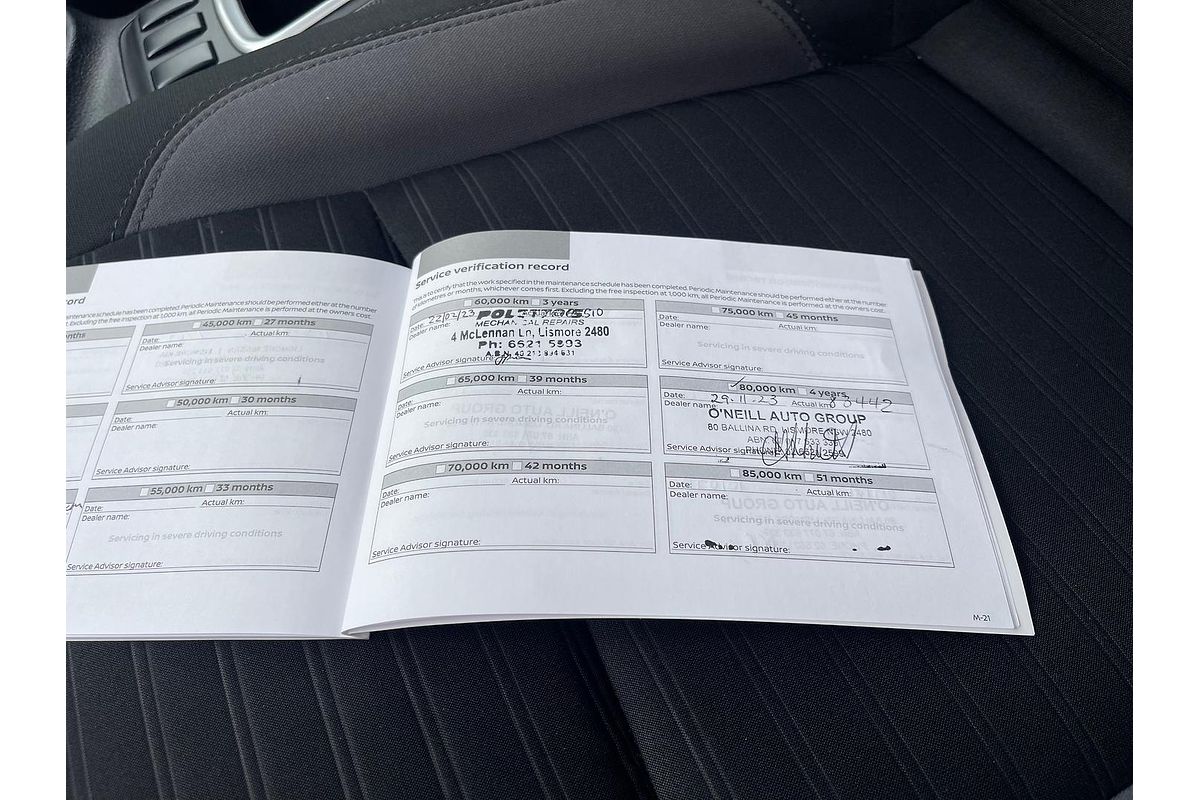 ord
45,000 km 27 months
Actual km:
Dealer name:
Servicing in severe driving conditions
Service Advisor signature:
50,000 km 30 months
Date:
Actual km:
Dealer name:
Service Advisor signature:
55,000 km 33 months
Date:
Actual km:
Dealer name:
Servicing in severe driving conditions
Service Advisor signature:
Service verification record
This is to certify that the work specified in the maintenance schedule has been completed. Periodic Maintenance should be performed either at the number
of kilometres or months, whichever comes first. Excluding the free inspection at 1,000 km, all Periodic Maintenance is performed at the owners cost.
60,000 km 3 years
Date:
Dealer name:
MECHANICAL REPAIRS
4 McLennan Ln, Lismore 2480
Ph: 6621 5893
Service Advisor signature:
65,000 km 39 months
Date:
Actual km:
Dealer name:
Servicing in severe driving conditions
Service Advisor signature:
70,000 km 42 months
Date:
Actual km:
Dealer name:
Service Advisor signature:
75,000 km 45 months
Date:
Actual km:
Dealer name:
Servicing in severe driving conditions
Service Advisor signature:
80,000 km 4 years
Date: 29.11.23 Actual km:
Dealer name:
O'NEILL AUTO GROUP
80 BALLINA RD, LISMORE NSW 2480
Service Advisor signature:
85,000 km 51 months
Date:
Actual km:
Dealer name:
Servicing in severe driving conditions
Service Advisor signature:
M-21